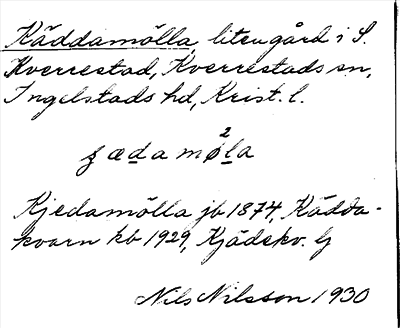 Käddamölla, liten gård i S.
Kverrestad, Kverrestads sn,
Ingelstads hd, Krist. l.
2
ꞔædamøla
Kjedamölla jb 1874, Kädda-
kvarn kb 1929, Kjädekv. Ij
Nils Nilsson 1930